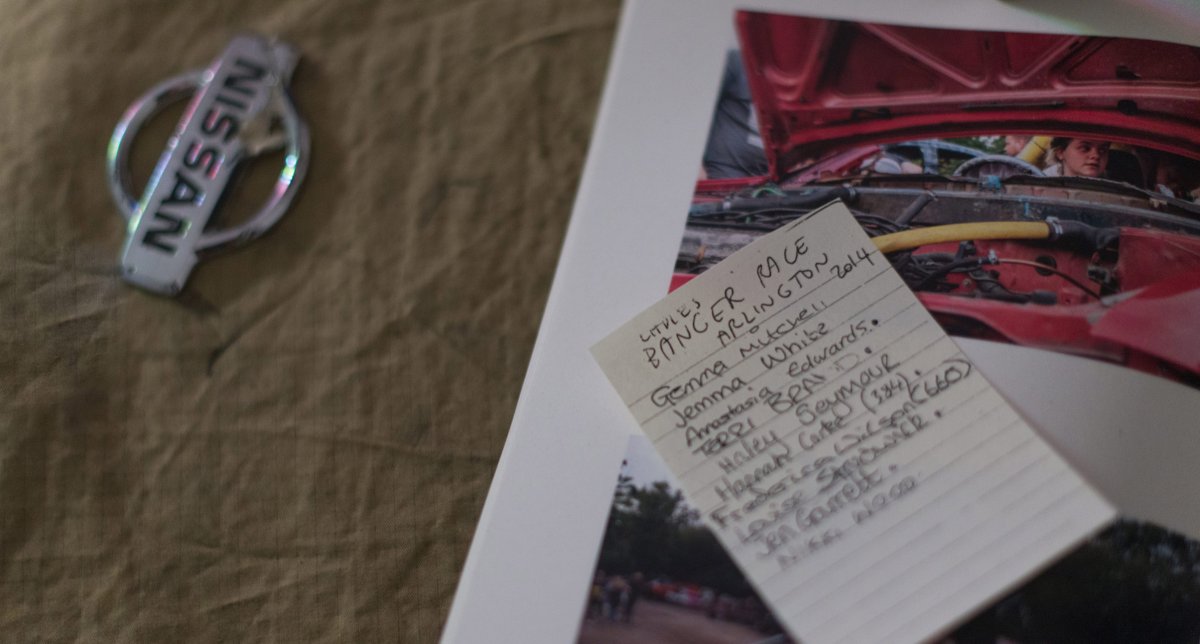 NISSAN
LADIES
BANGER RACE
ARLINGTON 2014
Gemma Mitchell
Jemma White
Anastasia Edwards.
TERRI BENI D.
Haley Seymour
Hannah Carke (384).
Frederica Wilson (660)
Louise Strudwick.
Jen Garrett.
Nikki Wood